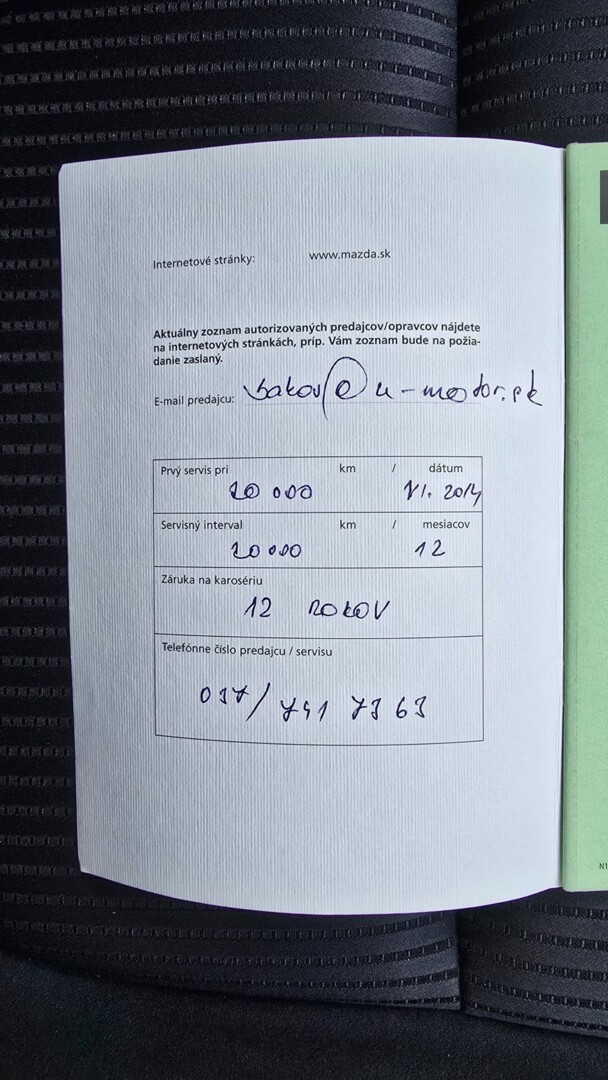 Internetové stránky: www.mazda.sk
Aktuálny zoznam autorizovaných predajcov/opravcov nájdete
na internetových stránkách, príp. Vám zoznam bude na požia-
danie zaslaný.
E-mail predajcu: @ u-motor.sk
Prvý servis pri km / dátum
20 000 VI. 2014
Servisný interval km / mesiacov
20 000 12
Záruka na karosériu
12 ROKOV
Telefónne číslo predajcu / servisu
037/ 741 73 63
N1